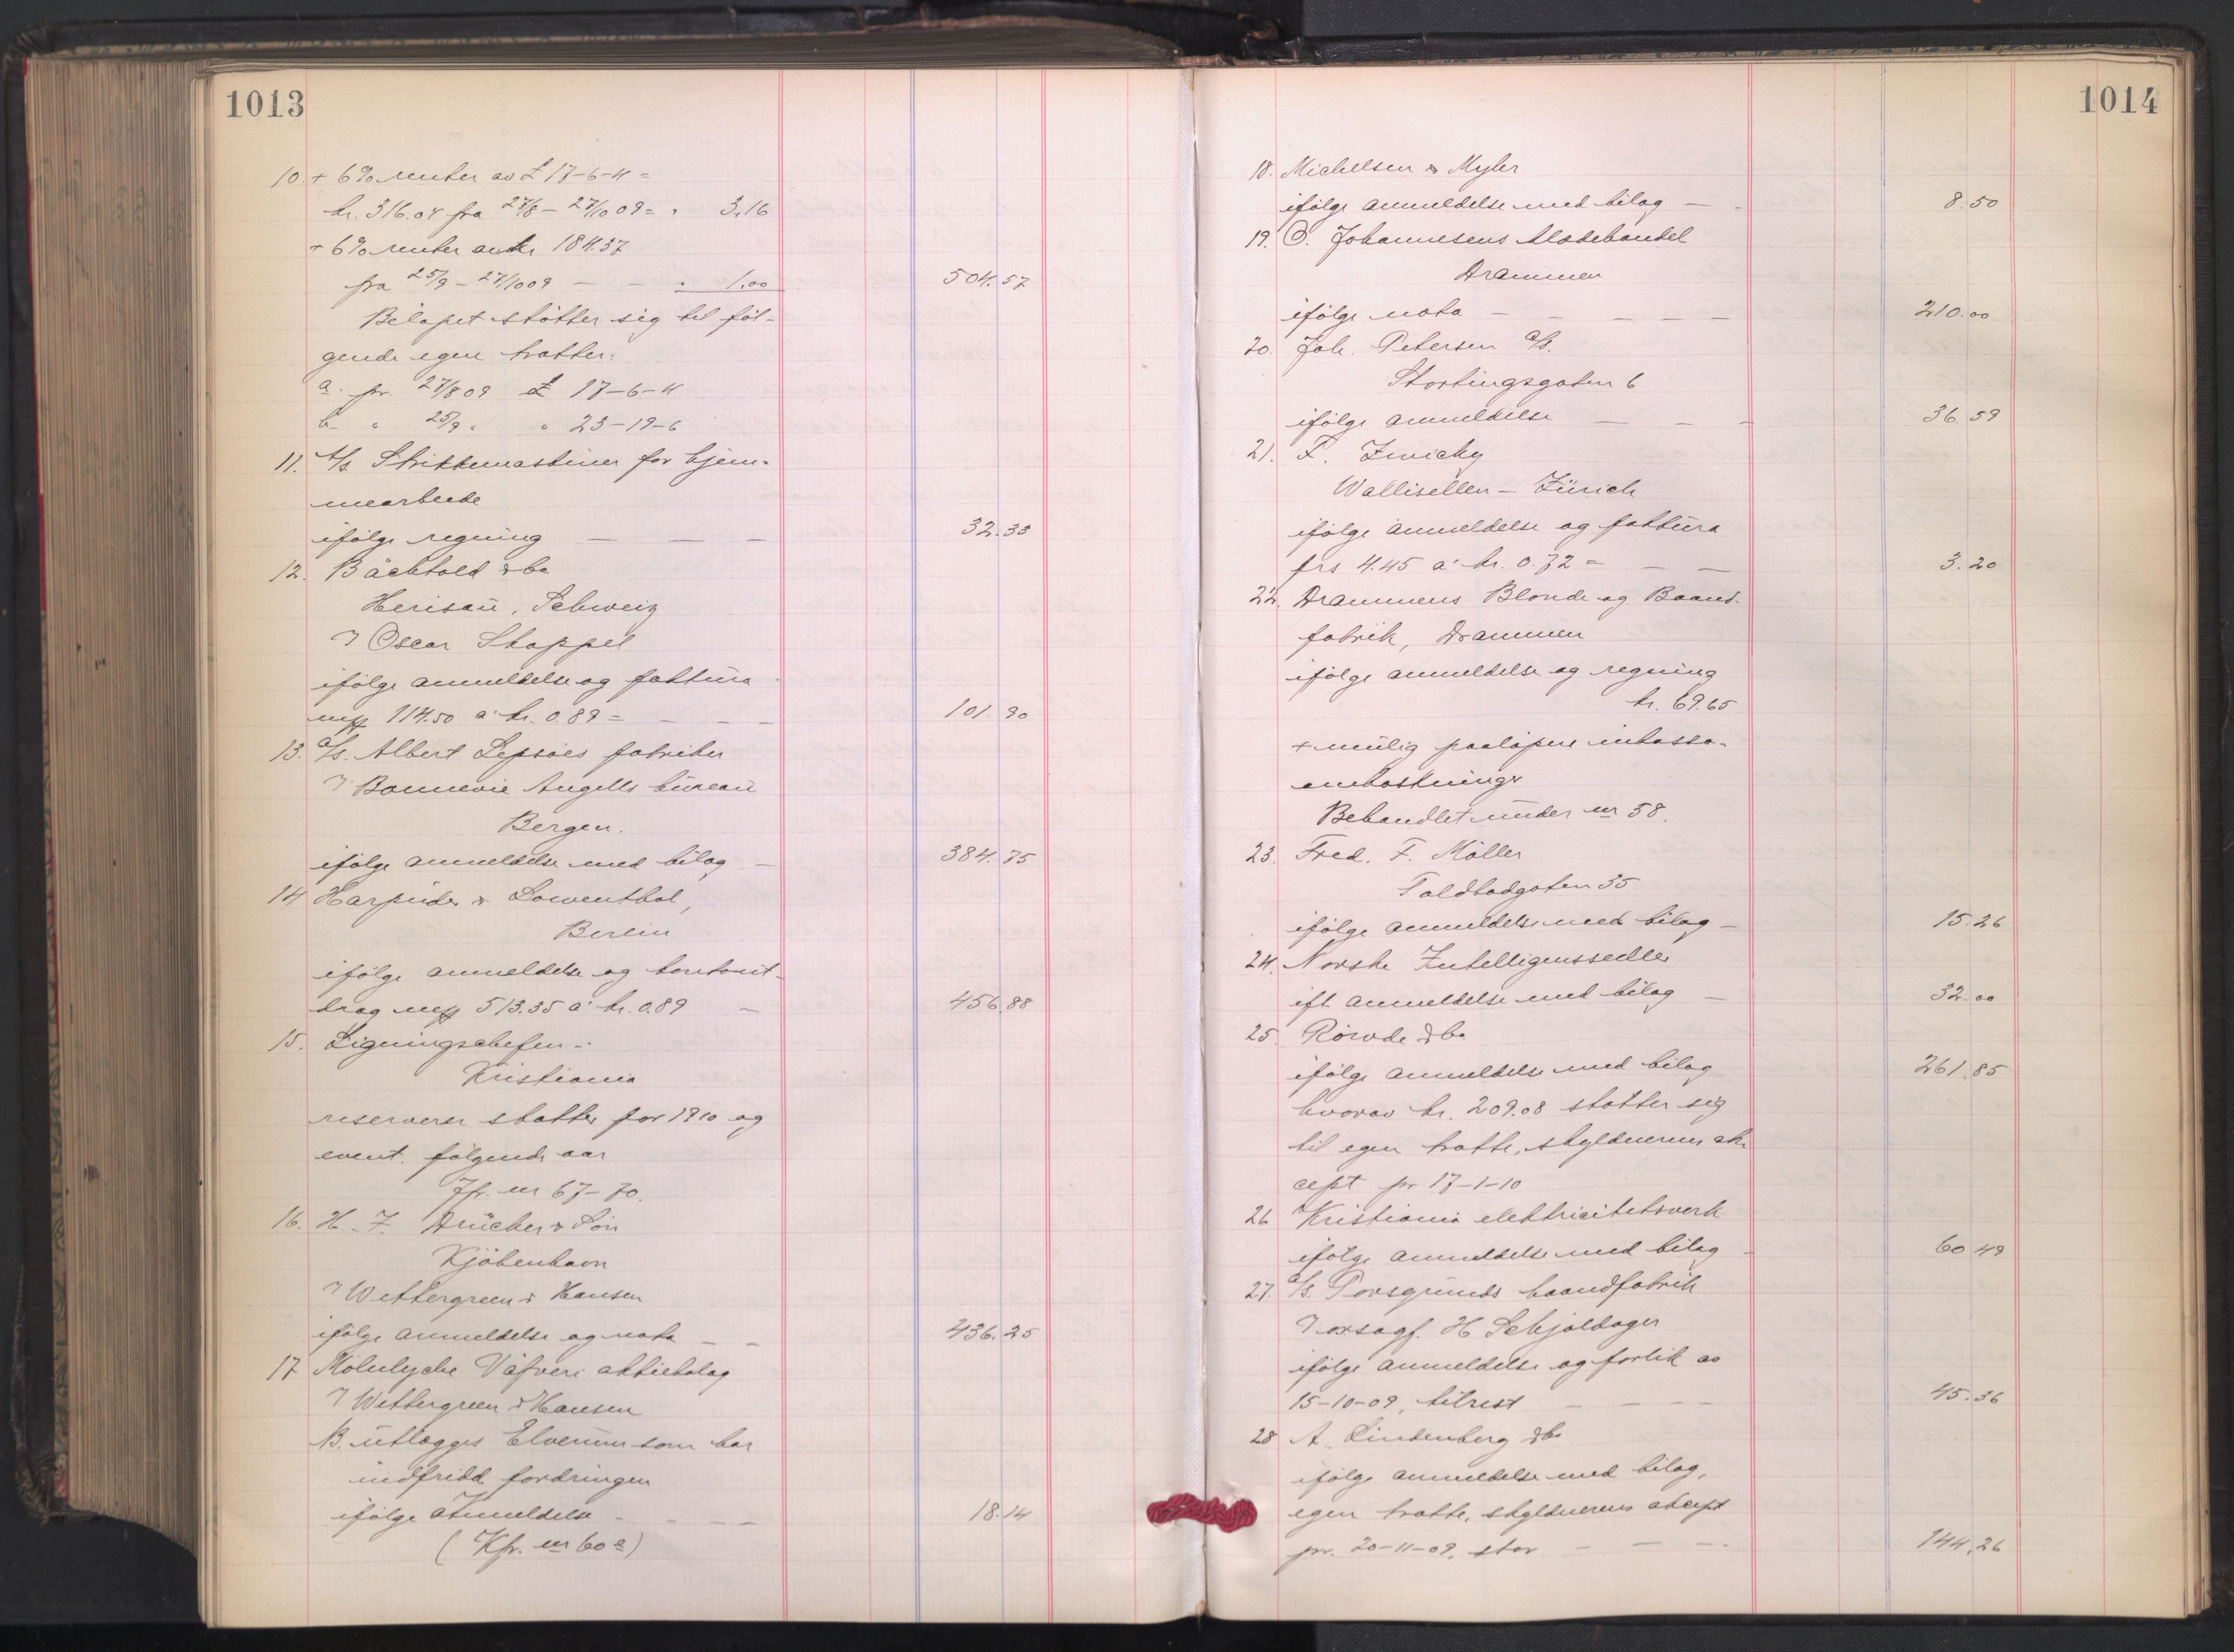 1013
10. + 6% renter av £ 17-6-4 =
kr. 316.04 fra 27/8 - 27/10 09 = " 3,16
+ 6% renter av kr 184.37
fra 25/9 - 27/10 09 — — " 1,00 504.57
Beløpet støtter sig til føl-
gende egen tratter:
a. pr. 27/8 09 £ 17-6-4
b. " 25/9 " " 23-19-6
11. A/s Strikkemaskiner for hjem-
mearbeide
ifølge regning — — — 32.33
12. Bächtold & Co
Herisau, Schweiz
v Oscar Stoppel
ifølge anmeldelse og faktura
mk 114.50 a' kr. 0.89 = — — — 101.90
13. A/s. Albert Lepsöes fabriker
v Bonnevie Angells bureau
Bergen.
ifølge anmeldelse med bilag — 384.75
14 Harpuder & Lowenthal,
Berlin
ifølge anmeldelse og kontout-
drag mk 513.35 a' kr. 0.89 — 456.88
15. Ligningschefen i
Kristiania
reserverer skatter for 1910 og
event. følgende aar
Jfr. nr 67-70.
16. H. F. Drücker & Søn
Kjøbenhavn
v Wettergreen & Hansen
ifølge anmeldelse og nota — — 436.25
17 Mölnlycke Väfveri aktiebolag
v Wettergreen & Hansen
B. utlægges Elverum som har
indfridd fordringen
ifølge anmeldelse — — — 18.14
(Kfr. nr 60 a)
1014
18. Michelsen & Myhr
ifølge anmeldelse med bilag — — 8.50
19. O. Johannesens Modehandel
Drammen
ifølge nota — — — — — 210.00
20. Joh. Petersen A/s.
Stortingsgaten 6
ifølge anmeldelse — — — 36.59
21. F. Zwicky
Wallisellen - Zürich
ifølge anmeldelse og faktura
frs 4.45 a' kr. 0.72 = — — 3.20
22. Drammens Blonde og Baand-
fabrik, Drammen
ifølge anmeldelse og regning
kr. 69.65
+ mulig paaløpne inkasso-
omkostninger
Behandlet under nr 58.
23. Fred. F. Möller
Toldbodgaten 35
ifølge anmeldelse med bilag — 15.26
24. Norske Intelligenssedler
ifl. anmeldelse med bilag — 32.00
25. Rörvde & Co
ifølge anmeldelse med bilag 261.85
hvorav kr. 209.08 støtter sig
til egen tratte, skyldnerens ak-
cept pr 17-1-10
26 Kristiania elektricitetsverk
ifølge anmeldelse med bilag — 60.49
27. A/s. Porsgrunds baandfabrik
v oxsagf. H Schjoldager
ifølge anmeldelse og forlik av
15-10-09, tilrest — — — — 45.36
28 A. Lindenberg & Co
ifølge anmeldelse med bilag,
egen tratte, skyldnerens akcept
pr. 20-11-09, stor — — — 144.26